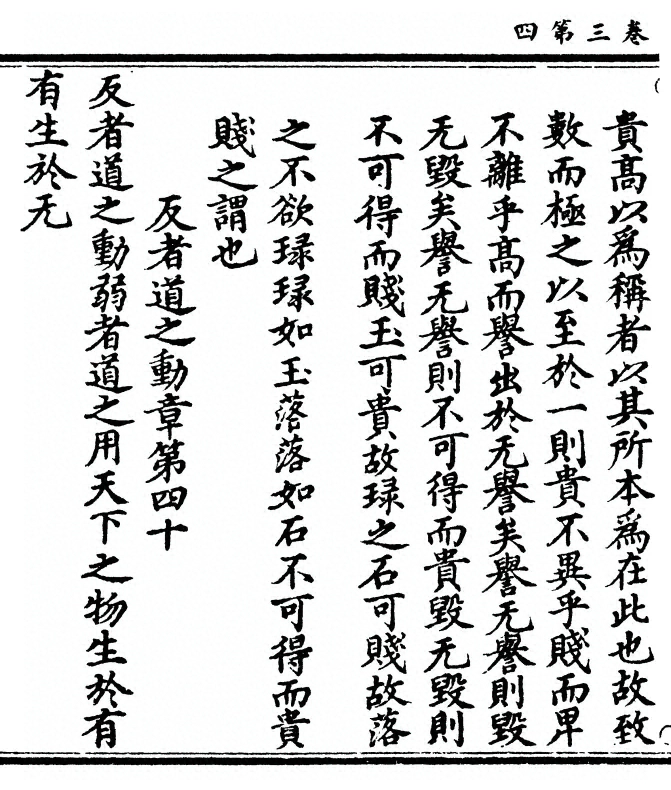 卷三第四
貴高以爲稱者以其所本爲在此也故致
數而極之以至於一則貴不異乎賤而卑
不離乎高而譽出於无譽矣譽无譽則毀
无毀矣譽无譽則不可得而貴毀无毀則
不可得而賤玉可貴故琭之石可賤故落
之不欲琭琭如玉落落如石不可得而貴
賤之謂也
反者道之動章第四十
反者道之動弱者道之用天下之物生於有
有生於无